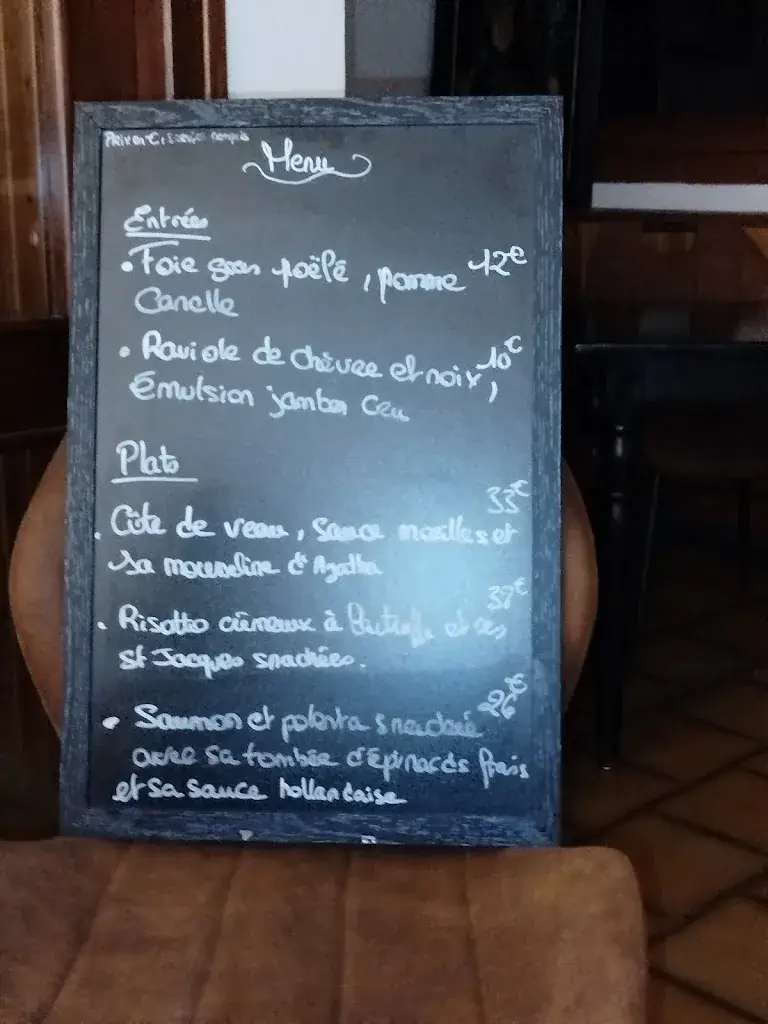 Prix en €, service compris
Menu
Entrées
• Foie gras poêlé, pomme 12€
Canelle
• Raviole de chèvre et noix, 10€
émulsion jambon cru
Plats
33€
• Côte de veau, sauce morilles et
sa mousseline d'Agatha
32€
• Risotto crémeux à la truffe et ses
St Jacques snackées.
26€
• Saumon et polenta snackée
avec sa tombée d'épinards frais
et sa sauce hollandaise